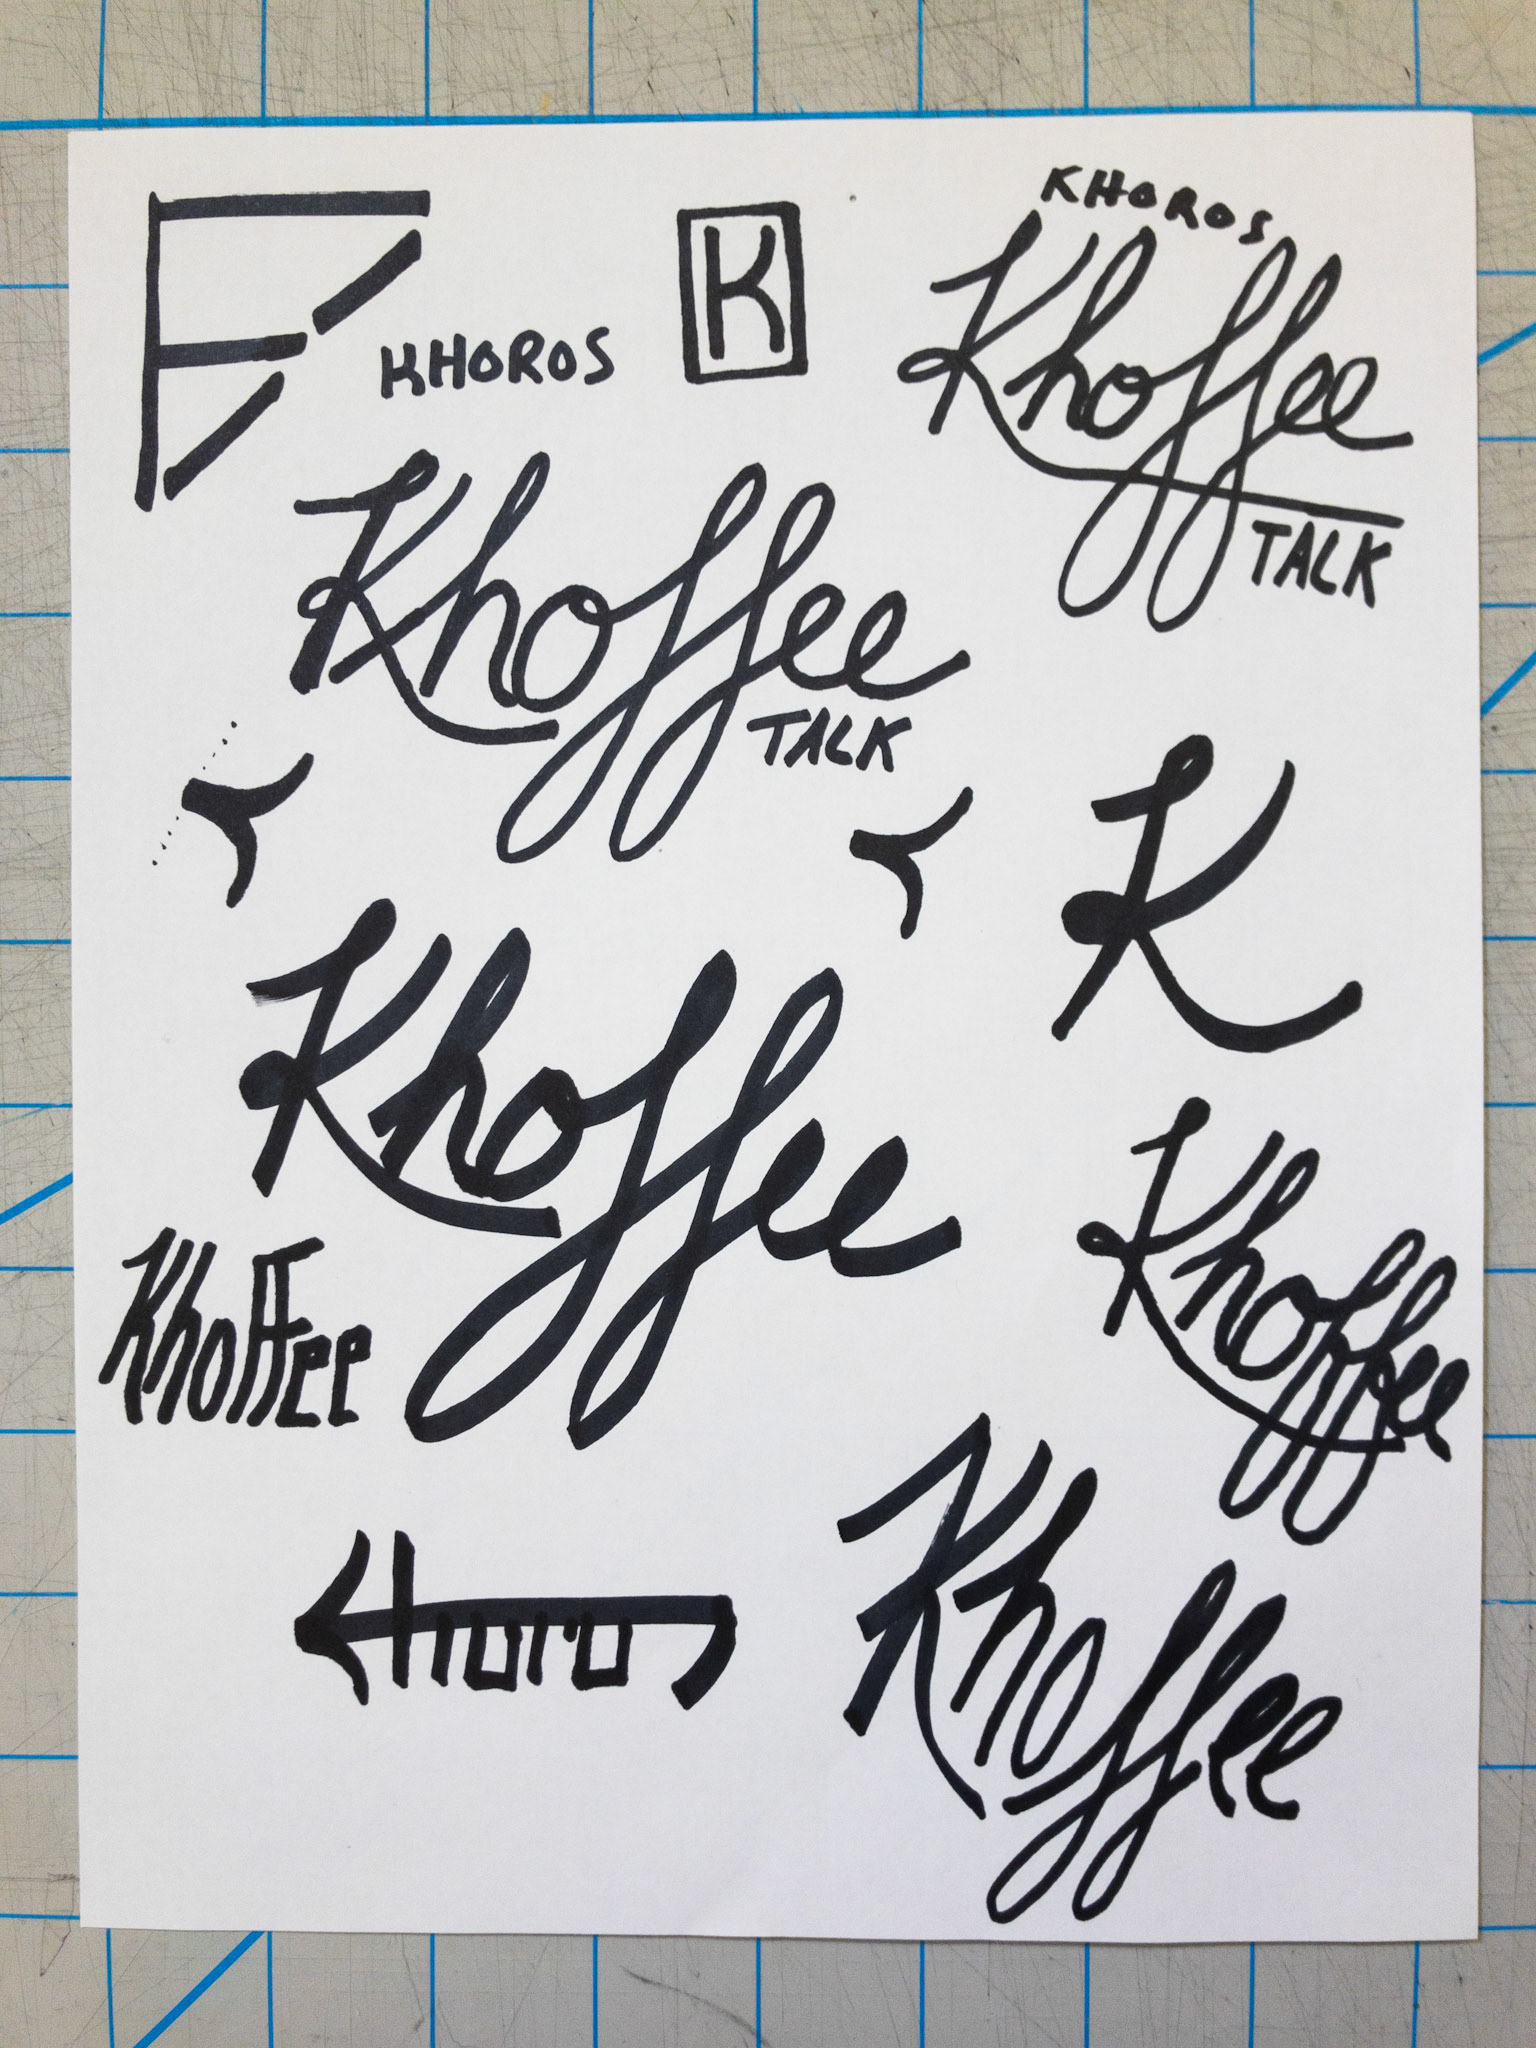 KHOROS
K
KHOROS
Khoffee
TALK
Khoffee
TALK
K
Khoffee
Khoffee
Khoffee
Khoros
Khoffee